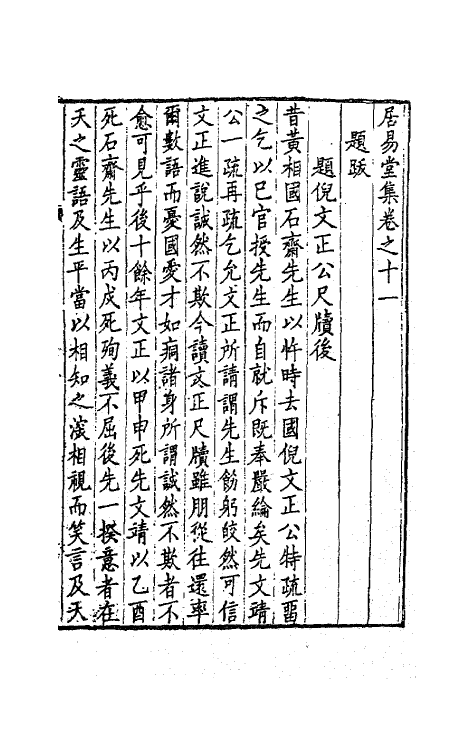 居易堂集卷之十一
題跋
題倪文正公尺牘後
昔黃相國石齋先生以忤時去國倪文正公特疏畱
之乞以已官授先生而自就斥既奉嚴綸矣先文靖
公一疏再疏乞允文正所請謂先生飭躬皎然可信
文正進說誠然不欺今讀文正尺牘雖朋從往還率
爾數語而憂國愛才如痌諸身所謂誠然不欺者不
愈可見乎後十餘年文正以甲申死先文靖以乙酉
死石齋先生以丙戌死殉義不屈後先一揆意者在
天之靈語及生平當以相知之深相視而笑言及天